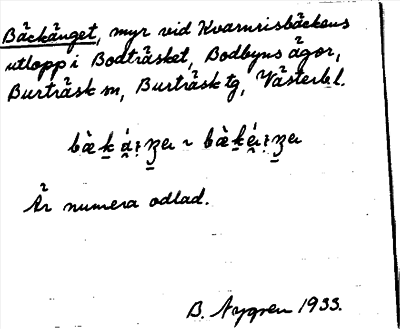 Bäckänget, myr vid Kvarnrisbäckens
utlopp i Bodträsket, Bodbyns ägor,
Burträsk sn, Burträsk tg, Västerb.l.
Är numera odlad.
B. Nygren 1933.